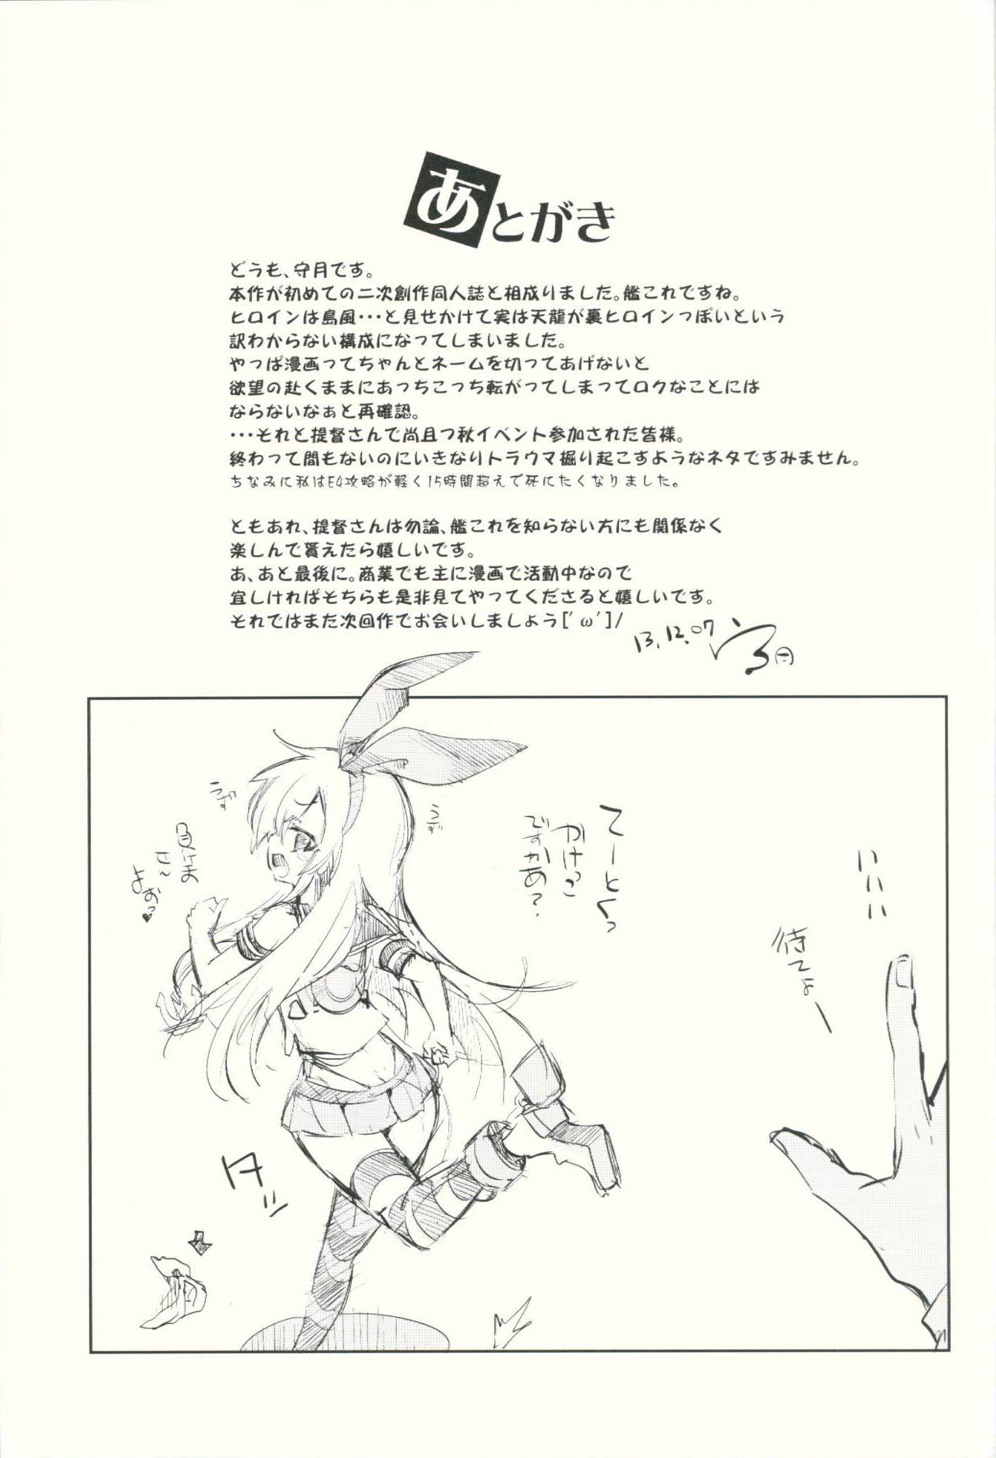 あとがき
どうも、守月です。
本作が初めての二次創作同人誌と相成りました。艦これですね。
ヒロインは島風・・・と見せかけて実は天龍が裏ヒロインっぽいという
訳わからない構成になってしまいました。
やっぱ漫画ってちゃんとネームを切ってあげないと
欲望の赴くままにあっちこっち転がってしまってロクなことには
ならないなぁと再確認。
・・・それと提督さんで尚且つ秋イベント参加された皆様。
終わって間もないのにいきなりトラウマ掘り起こすようなネタですみません。
ちなみに私はE4攻略が軽く15時間超えで死にたくなりました。
ともあれ、提督さんは勿論、艦これを知らない方にも関係なく
楽しんで貰えたら嬉しいです。
あ、あと最後に。商業でも主に漫画で活動中なので
宜しければそちらも是非見てやってくださると嬉しいです。
それではまた次回作でお会いしましょう['ω']/
13.12.07
てーとくっ
かけっこ
ですかあ?
いいい
待てよー
うず
うず
負けま
せん
よおっ♥
タッ